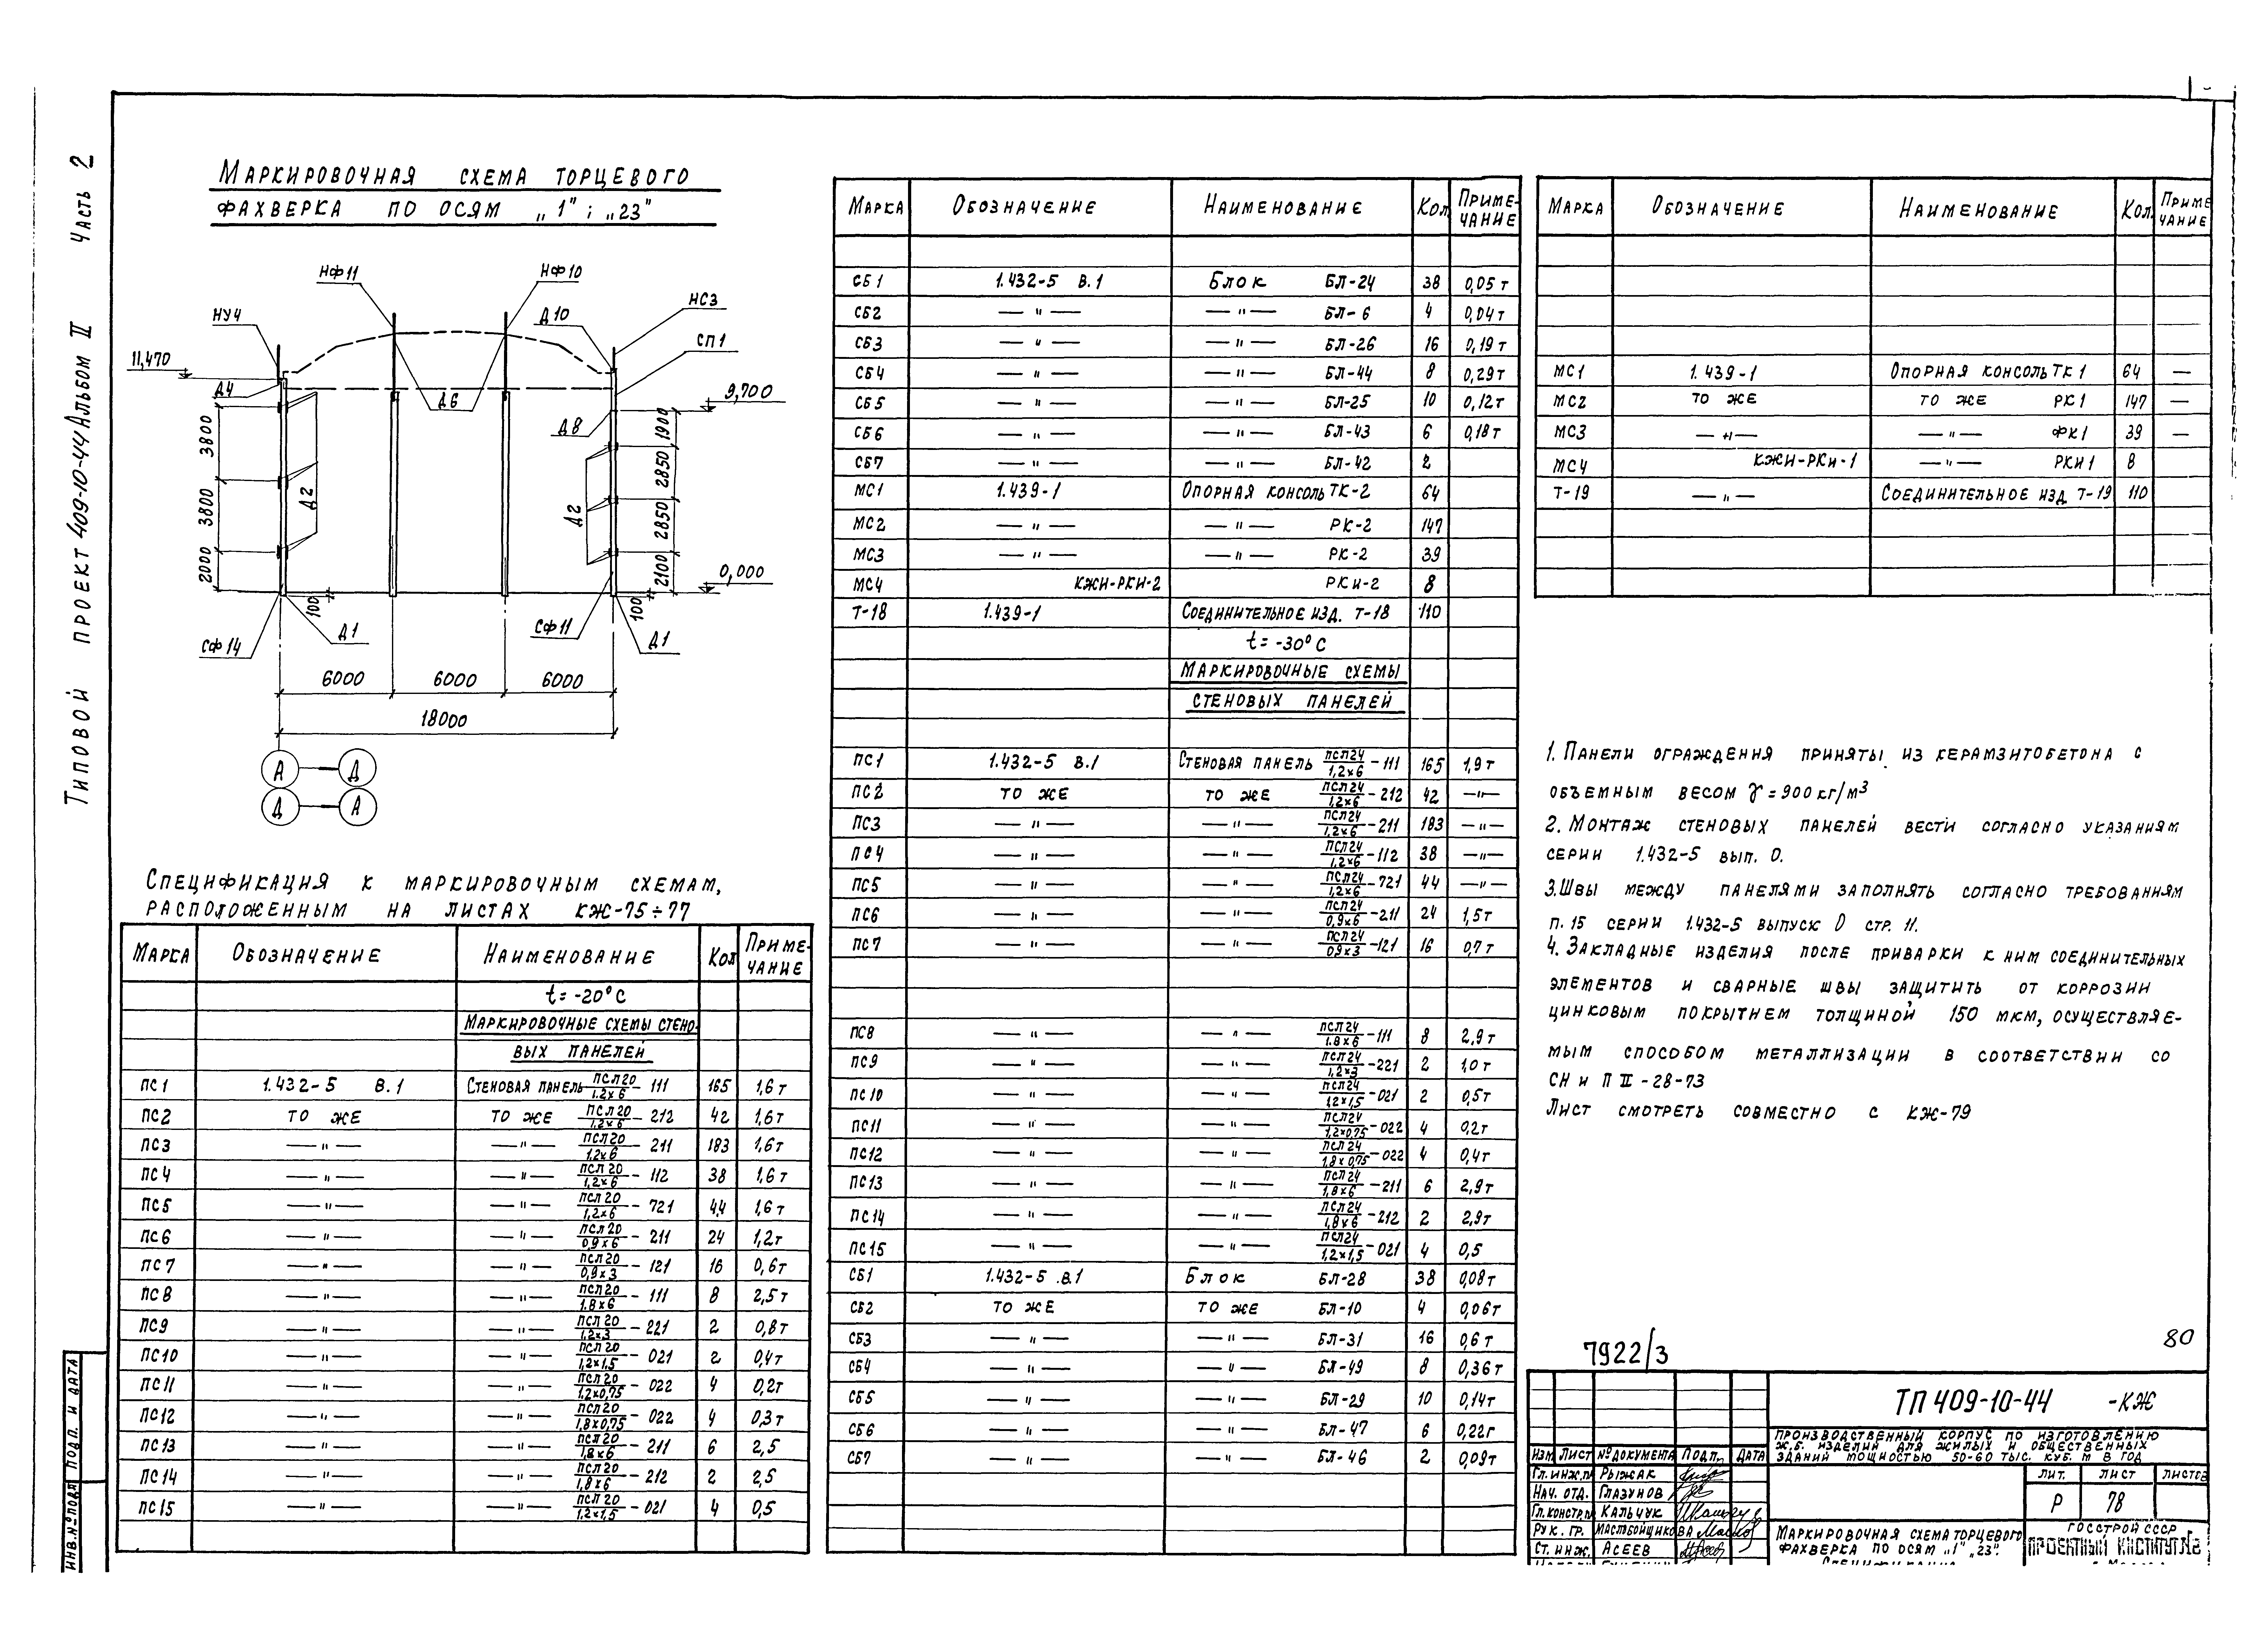 Типовой проект 409-10-44 Альбом III Часть 2
Маркировочная схема торцевого
фахверка по осям „1"; „23"
НФ11
НФ10
НС3
НУ4
Д10
СП1
11,470
Д4
Д6
9,700
Д8
3800
3800
2000
Д2
Д2
1900
2850
2850
2100
0,000
100
100
СФ14
Д1
СФ11
Д1
6000 6000 6000
18000
А — Д
Д — А
Спецификация к маркировочным схемам,
расположенным на листах КЖ-75÷77
Марка Обозначение Наименование Кол Приме-чание
t= -20°C
Маркировочные схемы стено-
вых панелей
ПС1 1.432-5 В.1 Стеновая панель ПСЛ20/1.2×6 - 111 165 1,6т
ПС2 то же то же ПСЛ20/1.2×6 - 212 42 1,6т
ПС3 — " — — " — ПСЛ20/1.2×6 - 211 183 1,6т
ПС4 — " — — " — ПСЛ20/1,2×6 - 112 38 1,6т
ПС5 — " — — " — ПСЛ20/1,2×6 - 721 44 1,6т
ПС6 — " — — " — ПСЛ20/0,9×6 - 211 24 1,2т
ПС7 — " — — " — ПСЛ20/0,9×3 - 121 16 0,6т
ПС8 — " — — " — ПСЛ20/1.8×6 - 111 8 2,5т
ПС9 — " — — " — ПСЛ20/1.2×3 - 221 2 0,8т
ПС10 — " — — " — ПСЛ20/1,2×1,5 - 021 2 0,4т
ПС11 — " — — " — ПСЛ20/1.2×0,75 - 022 4 0,2т
ПС12 — " — — " — ПСЛ20/1,8×0,75 - 022 4 0,3т
ПС13 — " — — " — ПСЛ20/1,8×6 - 211 6 2,5
ПС14 — " — — " — ПСЛ20/1,8×6 - 212 2 2,5
ПС15 — " — — " — ПСЛ20/1.2×1,5 - 021 4 0,5
Марка Обозначение Наименование Кол Приме-чание
СБ1 1.432-5 В.1 Блок БЛ-24 38 0,05т
СБ2 — " — — " — БЛ-6 4 0,04т
СБ3 — " — — " — БЛ-26 16 0,19т
СБ4 — " — — " — БЛ-44 8 0,29т
СБ5 — " — — " — БЛ-25 10 0,12т
СБ6 — " — — " — БЛ-43 6 0,18т
СБ7 — " — — " — БЛ-42 2
МС1 1.439-1 Опорная консоль ТК-2 64
МС2 — " — — " — РК-2 147
МС3 — " — — " — РК-2 39
МС4 КЖИ-РКИ-2 РКИ-2 8
Т-18 1.439-1 Соединительное изд. Т-18 110
t= -30°C
Маркировочные схемы
стеновых панелей
ПС1 1.432-5 В.1 Стеновая панель ПСЛ24/1,2×6 -111 165 1,9т
ПС2 то же то же ПСЛ24/1.2×6 -212 42 —"—
ПС3 — " — — " — ПСЛ24/1,2×6 -211 183 —"—
ПС4 — " — — " — ПСЛ24/1,2×6 -112 38 —"—
ПС5 — " — — " — ПСЛ24/1,2×6 -721 44 —"—
ПС6 — " — — " — ПСЛ24/0,9×6 -211 24 1,5т
ПС7 — " — — " — ПСЛ24/0,9×3 -121 16 0,7т
ПС8 — " — — " — ПСЛ24/1.8×6 -111 8 2,9т
ПС9 — " — — " — ПСЛ24/1,2×3 -221 2 1,0т
ПС10 — " — — " — ПСЛ24/1,2×1,5 -021 2 0,5т
ПС11 — " — — " — ПСЛ24/1.2×0,75 -022 4 0,2т
ПС12 — " — — " — ПСЛ24/1,8×0,75 -022 4 0,4т
ПС13 — " — — " — ПСЛ24/1,8×6 -211 6 2,9т
ПС14 — " — — " — ПСЛ24/1,8×6 -212 2 2,9т
ПС15 — " — — " — ПСЛ24/1,2×1,5 -021 4 0,5
СБ1 1.432-5 .В.1 Блок БЛ-28 38 0,08т
СБ2 то же то же БЛ-10 4 0,06т
СБ3 — " — — " — БЛ-31 16 0,6т
СБ4 — " — — " — БЛ-49 8 0,36т
СБ5 — " — — " — БЛ-29 10 0,14т
СБ6 — " — — " — БЛ-47 6 0,22г
СБ7 — " — — " — БЛ-46 2 0,09т
Марка Обозначение Наименование Кол. Приме-чание
МС1 1.439-1 Опорная консоль ТК1 64 —
МС2 то же то же РК1 147 —
МС3 — " — — " — ФК1 39 —
МС4 КЖИ-РКИ-1 — " — РКИ1 8
Т-19 — " — Соединительное изд. Т-19 110
1. Панели ограждения приняты из керамзитобетона с
объемным весом γ=900кг/м³
2. Монтаж стеновых панелей вести согласно указаниям
серии 1.432-5 вып. 0.
3. Швы между панелями заполнять согласно требованиям
п. 15 серии 1.432-5 выпуск 0 стр. 11.
4. Закладные изделия после приварки к ним соединительных
элементов и сварные швы защитить от коррозии
цинковым покрытием толщиной 150 мкм, осуществляе-
мым способом металлизации в соответствии со
СН и П II-28-73
Лист смотреть совместно с КЖ-79
7922/3
80
ТП 409-10-44 -КЖ
Производственный корпус по изготовлению
ж.б. изделий для жилых и общественных
зданий мощностью 50-60 тыс. куб. м в год
Изм Лист № документа Подп. Дата
Гл.инж.п Рыжак
Нач. отд. Глазунов
Гл.констр.п Кальчук
Рук. гр. Мастбойщикова
Ст. инж. Асеев
Лит. Лист Листов
Р 78
Маркировочная схема торцевого
фахверка по осям „1" „23".
Спецификация
Госстрой СССР
Проектный институт №2
г. Москва
Подп. и дата
Инв.№ подл